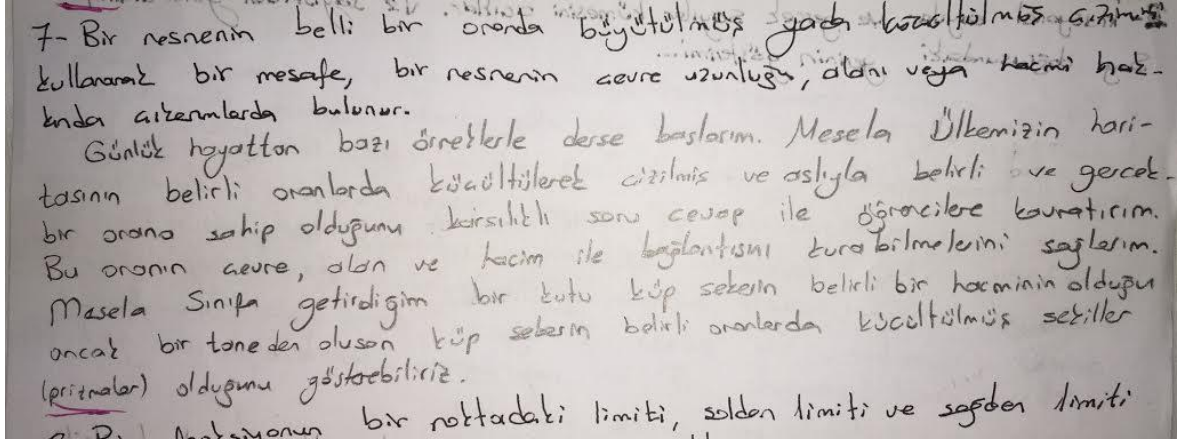 7- Bir nesnenin belli bir oranda büyütülmüş yada küçültülmüş çizimini
kullanarak bir mesafe, bir nesnenin çevre uzunluğu, alanı veya hacmi hak-
kında çıkarımlarda bulunur.
Günlük hayattan bazı örneklerle derse başlarım. Mesela Ülkemizin hari-
tasının belirli oranlarda küçültülerek çizilmiş ve aslıyla belirli ve gerçek-
bir orana sahip olduğunu karşılıklı soru cevap ile öğrencilere kavratırım.
Bu oranın çevre, alan ve hacim ile bağlantısını kurabilmelerini sağlarım.
Mesela Sınıfa getirdiğim bir kutu küp şekerin belirli bir hacminin olduğu
ancak bir taneden oluşan küp şekerin belirli oranlarda küçültülmüş şekiller
(prizmalar) olduğunu gösterebiliriz.
bir noktadaki limiti, soldan limiti ve sağdan limiti